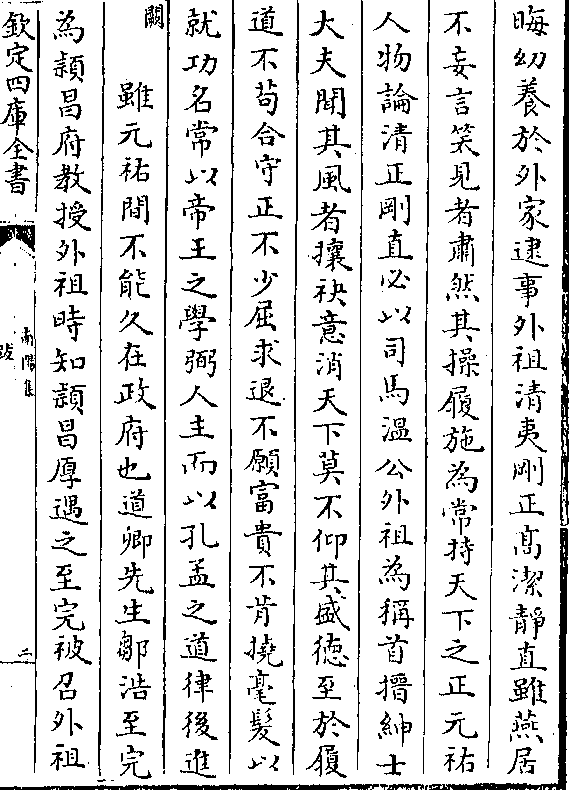 晦幼養於外家逮事外祖清夷剛正髙潔靜直雖燕居
不妄言笑見者肅然其操履施為常持天下之正元祐
人物論清正剛直必以司馬温公外祖為稱首搢紳士
大夫聞其風者攘袂意消天下莫不仰其盛徳至於履
道不苟合守正不少屈求退不願富貴不肯撓毫髮以
就功名常以帝王之學弼人主而以孔孟之道律後進
闕
雖元祐間不能久在政府也道卿先生鄒浩至完
為頴昌府教授外祖時知頴昌厚遇之至完被召外祖
欽定四庫全書
南陽集
跋
二